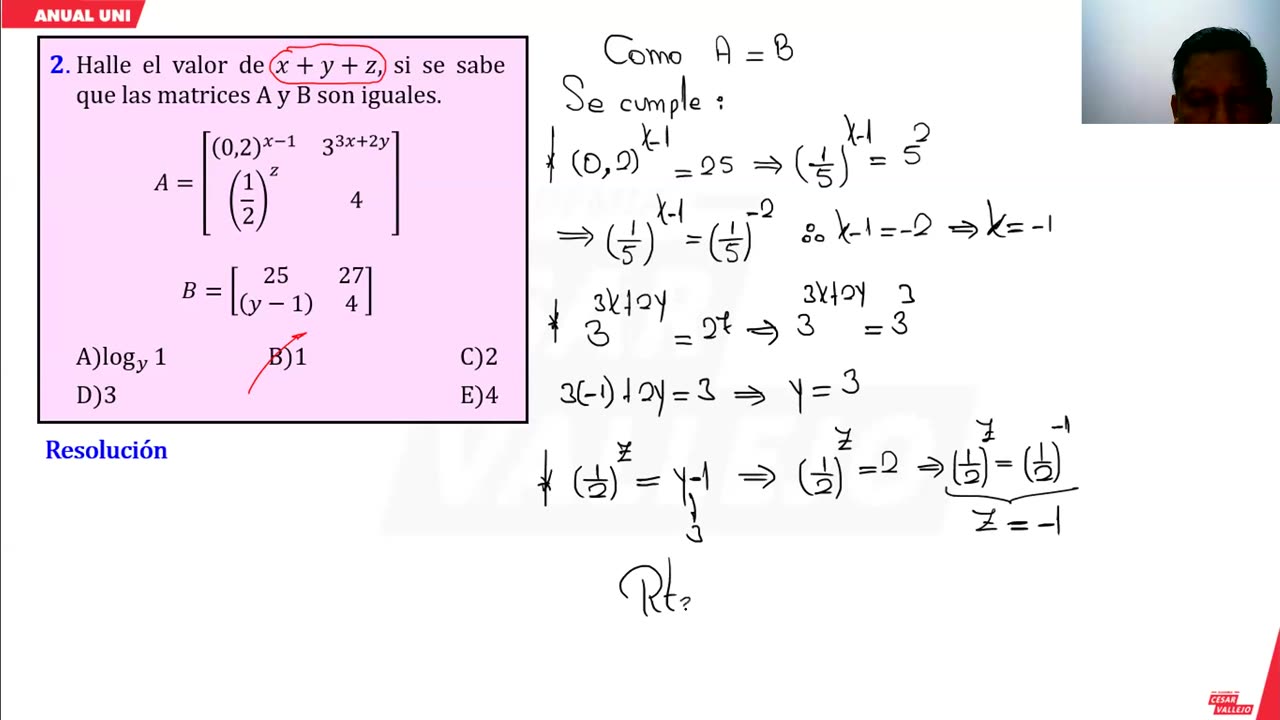 ANUAL UNI
2. Halle el valor de x + y + z, si se sabe
que las matrices A y B son iguales.
A = [(0,2)^{x−1} 3^{3x+2y}
(1/2)^z 4]
B = [25 27
(y − 1) 4]
A)log_y 1 B)1 C)2
D)3 E)4
Resolución
Como A = B
Se cumple :
* (0,2)^{x-1} = 25 ⇒ (1/5)^{x-1} = 5^2
⇒ (1/5)^{x-1} = (1/5)^{-2} ∴ x-1 = -2 ⇒ x = -1
* 3^{3x+2y} = 27 ⇒ 3^{3x+2y} = 3^3
3(-1)+2y = 3 ⇒ y = 3
* (1/2)^z = y-1 ⇒ (1/2)^z = 2 ⇒ (1/2)^z = (1/2)^{-1}
3
z = -1
CESAR
VALLEJO